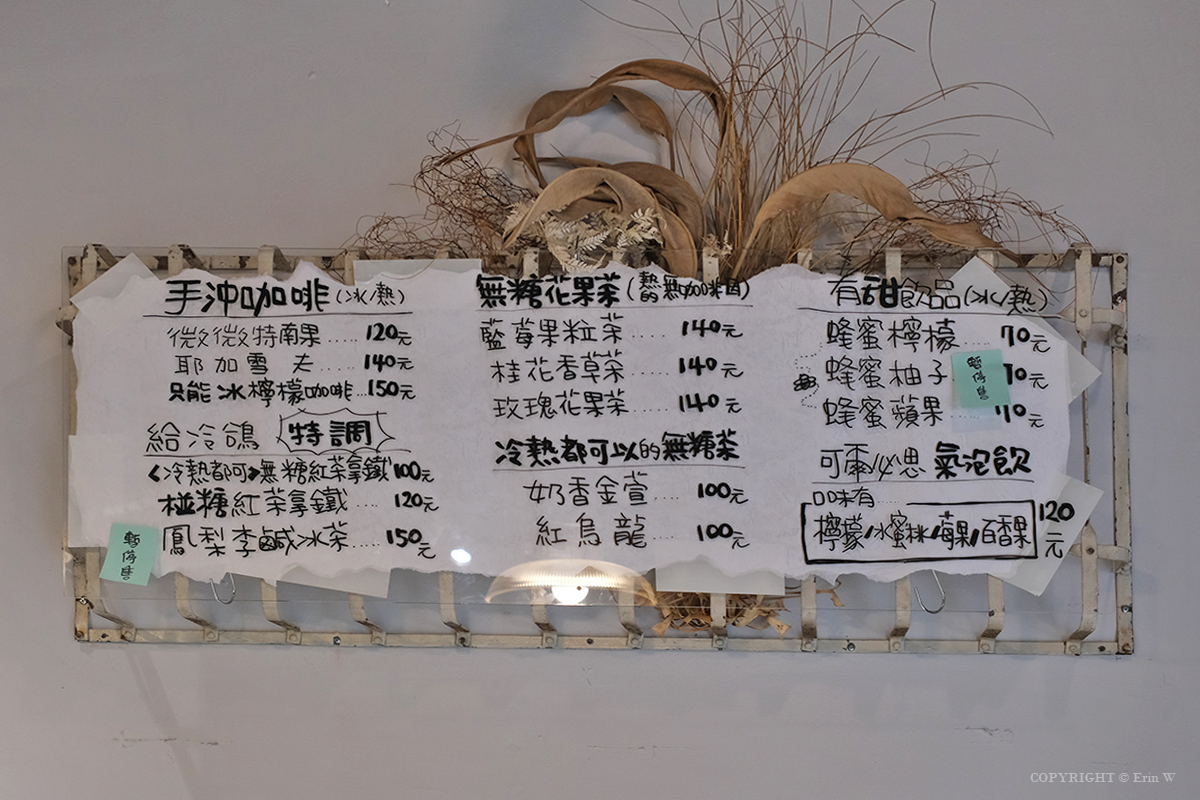 手沖咖啡(冰/熱)
微微特南果.....120元
耶加雪夫.....140元
只能冰檸檬咖啡...150元
給冷鴿 特調
<冷熱都可>無糖紅茶拿鐵100元
椪糖紅茶拿鐵....120元
鳳梨李鹹冰茶....150元
暫停售
無糖花果茶(熱的無咖啡因)
藍莓果粒茶......140元
桂花香草茶......140元
玫瑰花果茶......140元
冷熱都可以的無糖茶
奶香金萱....100元
紅烏龍......100元
有甜飲品(冰/熱)
蜂蜜檸檬....70元
蜂蜜柚子 70元
暫停售
蜂蜜蘋果....70元
可爾必思 氣泡飲
口味有.........
檸檬/水蜜桃/莓果/百香果 120元
COPYRIGHT © Erin W